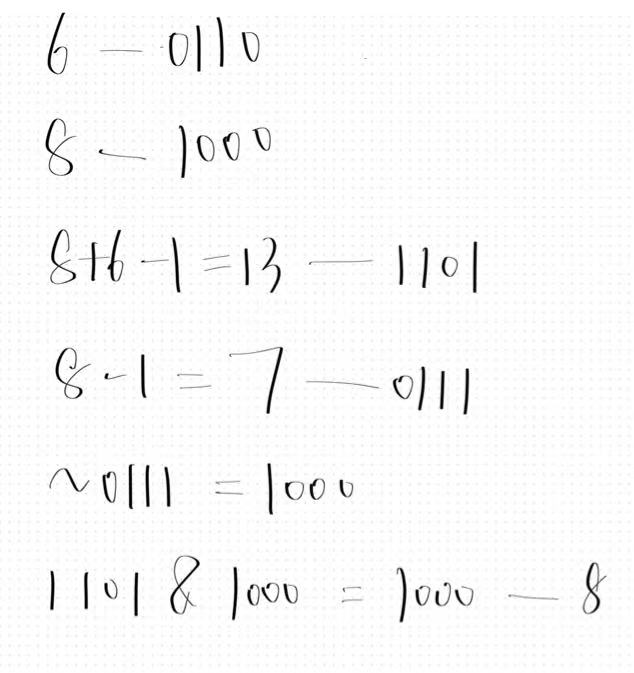 6 — 0110
8 — 1000
8+6-1=13 — 1101
8-1=7 — 0111
~0111 = 1000
1101 & 1000 = 1000 — 8